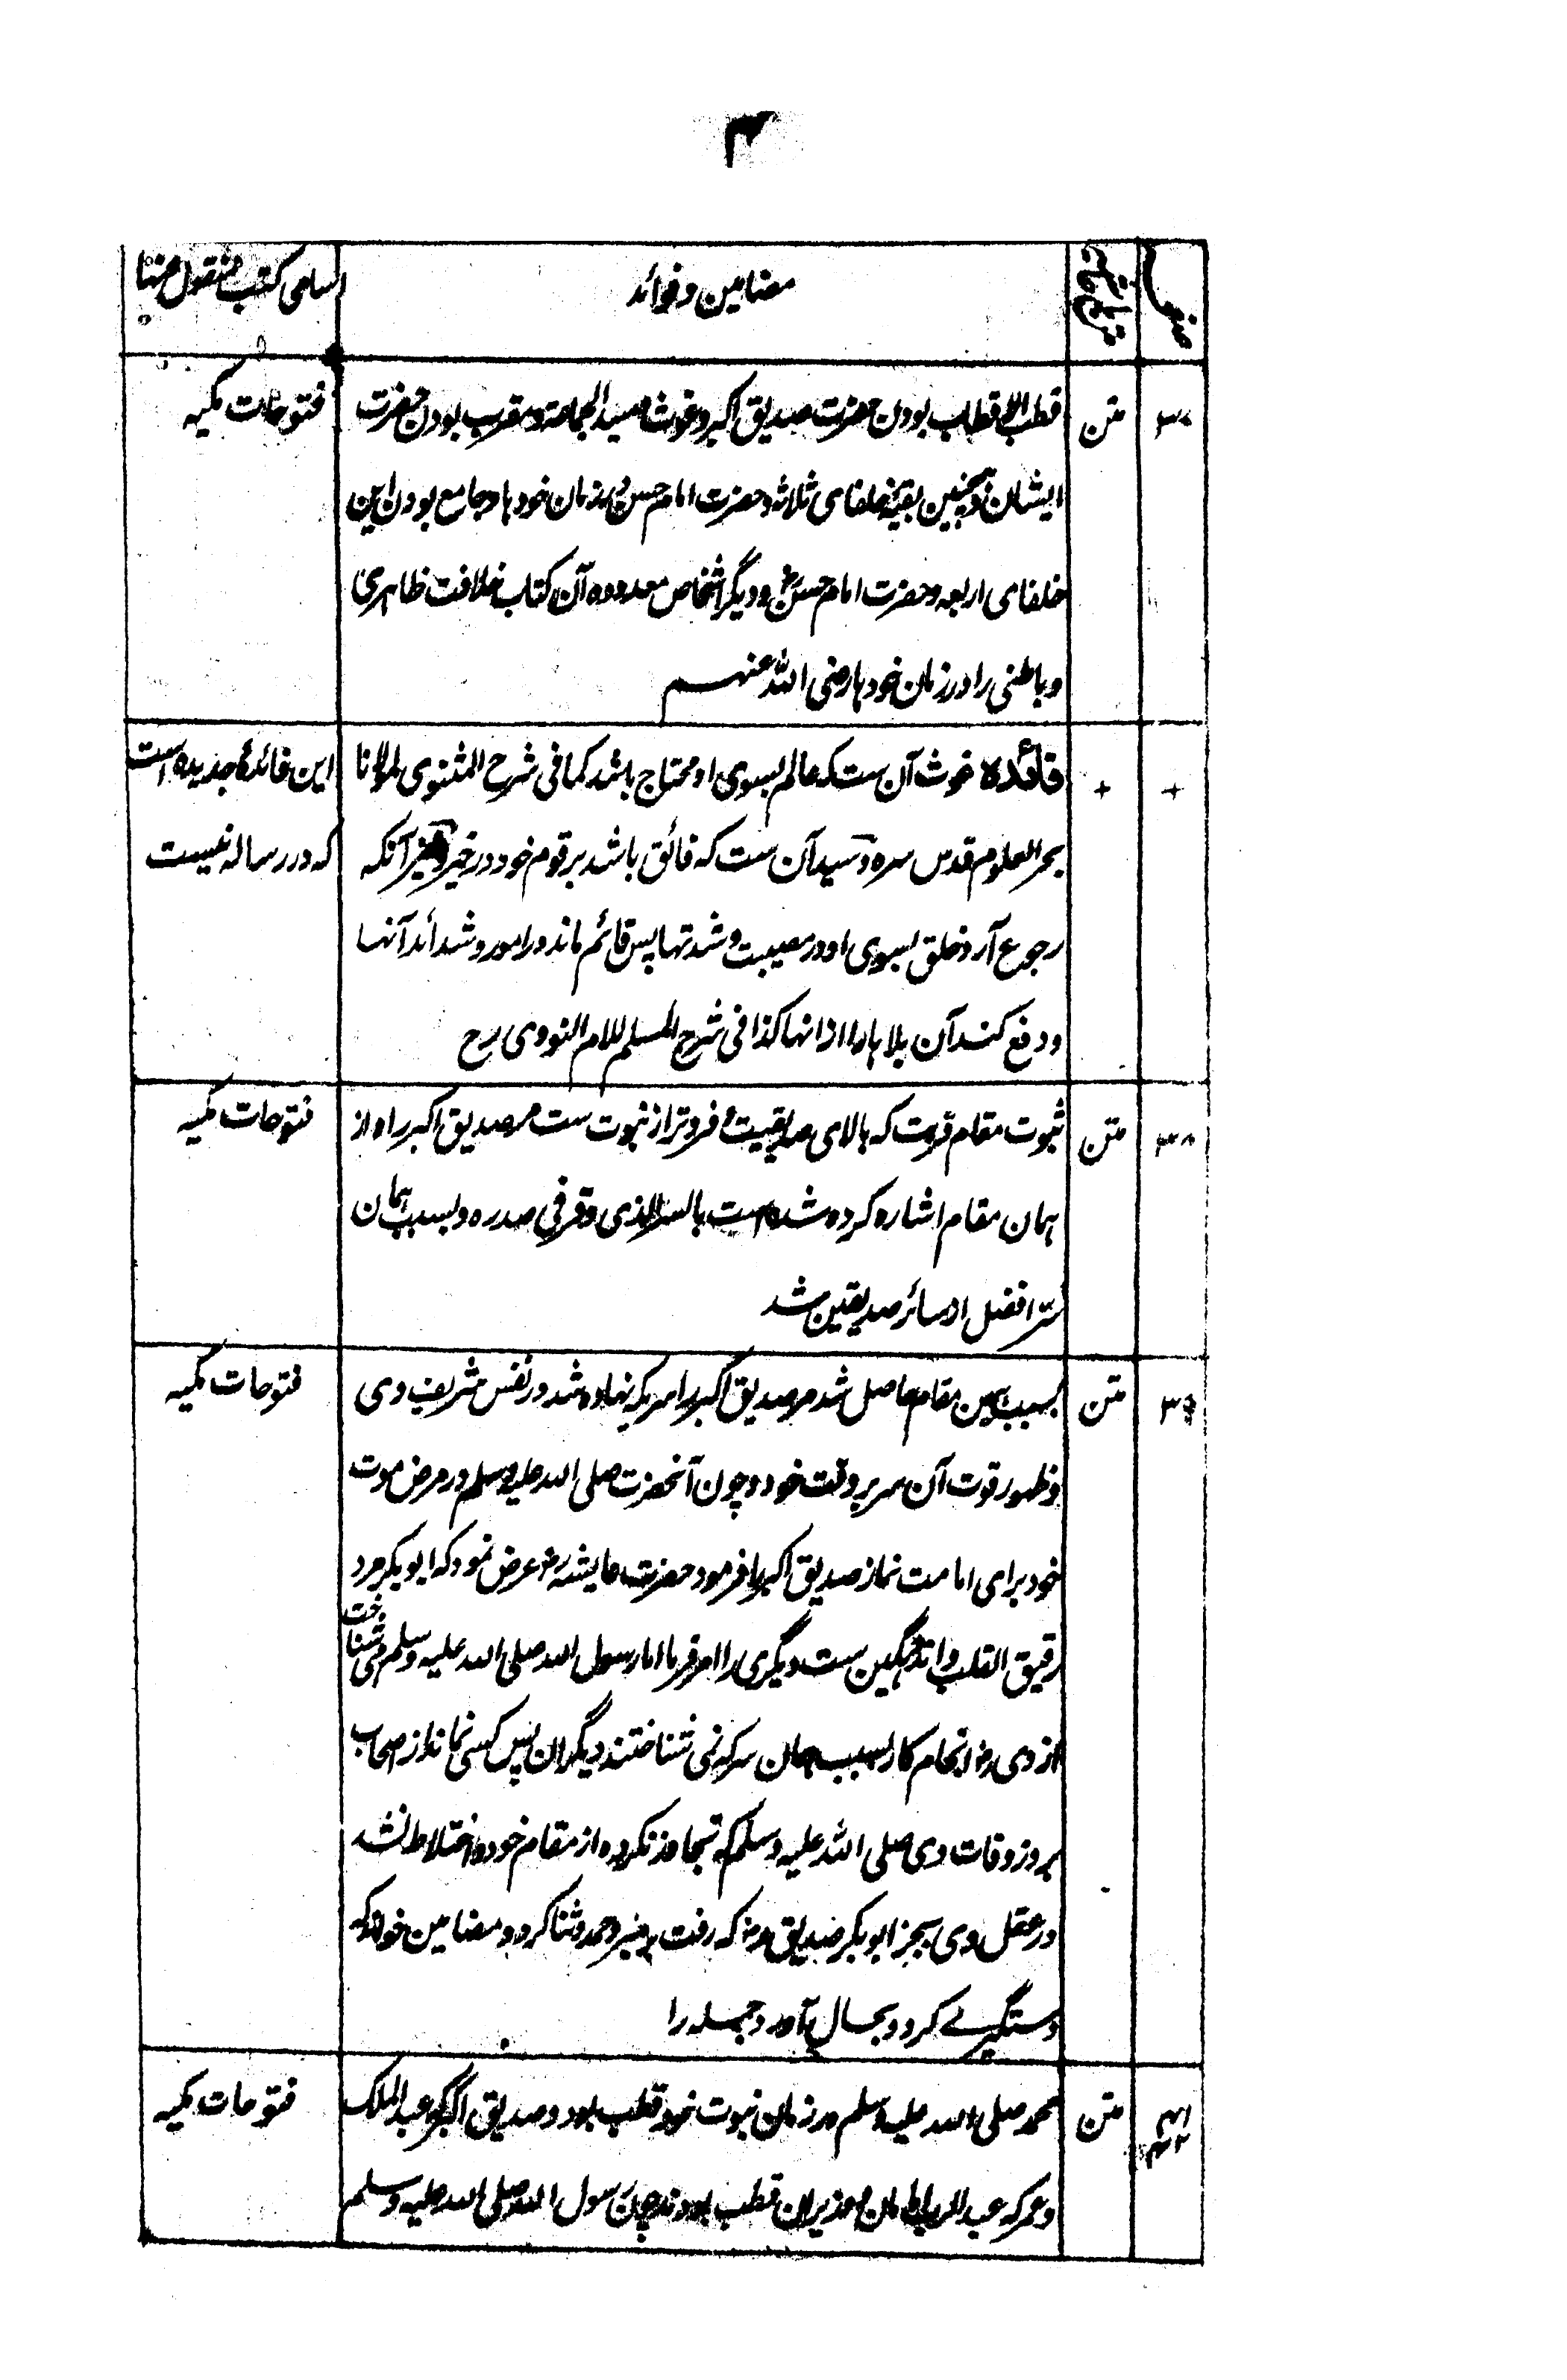 ۳
مضامین و فوائد
اسامی کتب منقول عنها
۳۷
متن
قطب الاقطاب بودن حضرت صدیق اکبر و غوث و سید الجماعة و مقرب بودن حضرت
فتوحات مکیه
ایشان و همچنین بقیه خلفای ثلاثه و حضرت امام حسن در زمان خودها و جامع بودن این
خلفای اربعه و حضرت امام حسن رض و دیگر اشخاص معدوده آن کتاب خلافت ظاهری
و باطنی را در زمان خودها رضی الله عنهم
+
+
فائده غوث آن ست که عالم بسوی او محتاج باشد کما فی شرح المثنوی لمولانا
این فائده جدیده است
بحر العلوم قدس سره و سید آن ست که فائق باشد بر قوم خود در خیر و غیر آنکه
که در رساله نیست
رجوع آرد خلق بسوی او در مصیبت و شدتها پس قائم ماند در امور و شدائد آنها
و دفع کند آن بلاها را از انها کذا فی شرح المسلم للامام النووی رح
۳۸
متن
ثبوت مقام قربت که بالای صدیقیت و فروتر از نبوت ست مر صدیق اکبر را و از
فتوحات مکیه
همان مقام اشاره کرده شده است بالسر الذی وقر فی صدره و بسبب همان
سر افضل از سائر صدیقین شد
۳۹
متن
بسبب همین مقام حاصل شد مر صدیق اکبر را سریکه نهاده شد در نفس شریف وی
فتوحات مکیه
و ظهور قوت آن سر بر وقت خود و چون آنحضرت صلی الله علیه وسلم در مرض موت
خود برای امامت نماز صدیق اکبر را فرمود حضرت عایشه رض عرض نمود که ابوبکر مرد
رقیق القلب و اندهگین ست دیگری را امر فرما اما رسول الله صلی الله علیه وسلم می شناخت
از وی رض انجام کار بسبب همان سر که نمی شناختند دیگران پس کسی نماند از اصحاب
بروز وفات وی صلی الله علیه وسلم که تجاوز نکرده از مقام خود و اختلاط نشد
در عقل وی بجز ابوبکر صدیق رض که رفت بر منبر و حمد و ثنا کرد و مضامین خواند که
دستگیری کرد و بحال آورد جمله را
متن
محمد صلی الله علیه وسلم در زمان نبوت خود قطب بود و صدیق اکبر که عبد الملک
فتوحات مکیه
و عمر که عبد الرب اند وزیران قطب بودند چون رسول الله صلی الله علیه وسلم